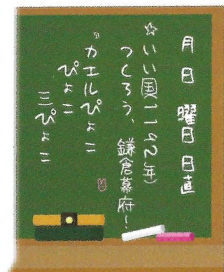 月 日 曜日 日直
☆いい国(1192年)
つくろう、鎌倉幕府!
"カエルぴょこ
ぴょこ
三ぴょこ